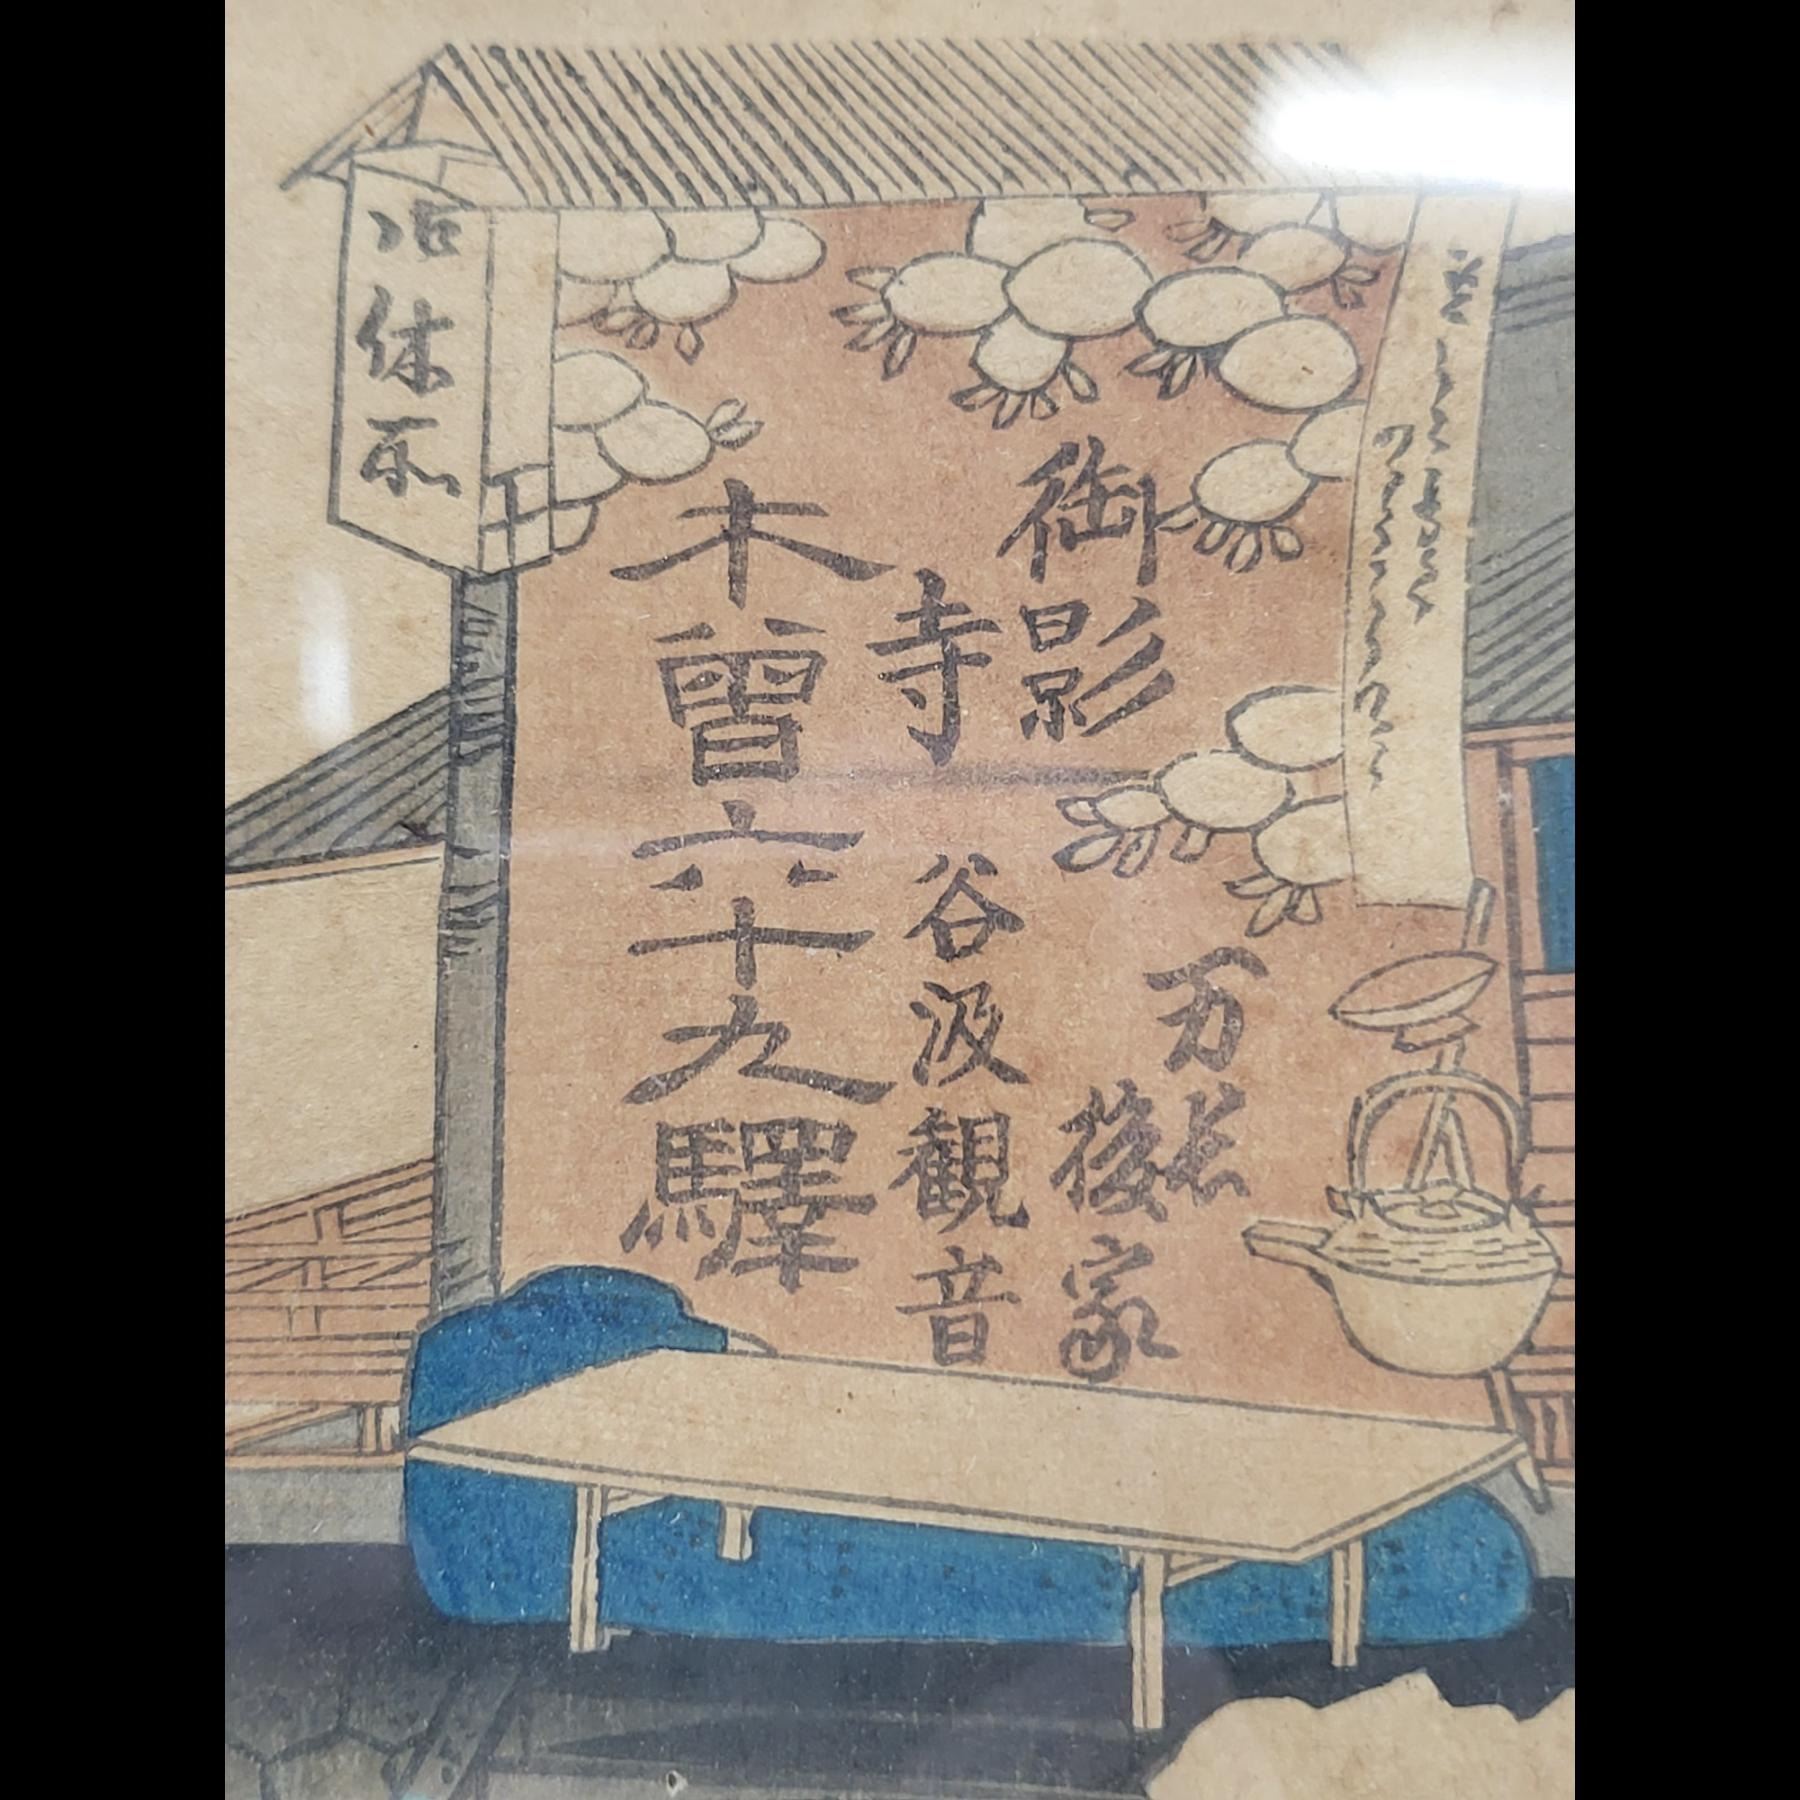 御影寺
万長
後家
谷汲観音
木曾六十九驛
休所